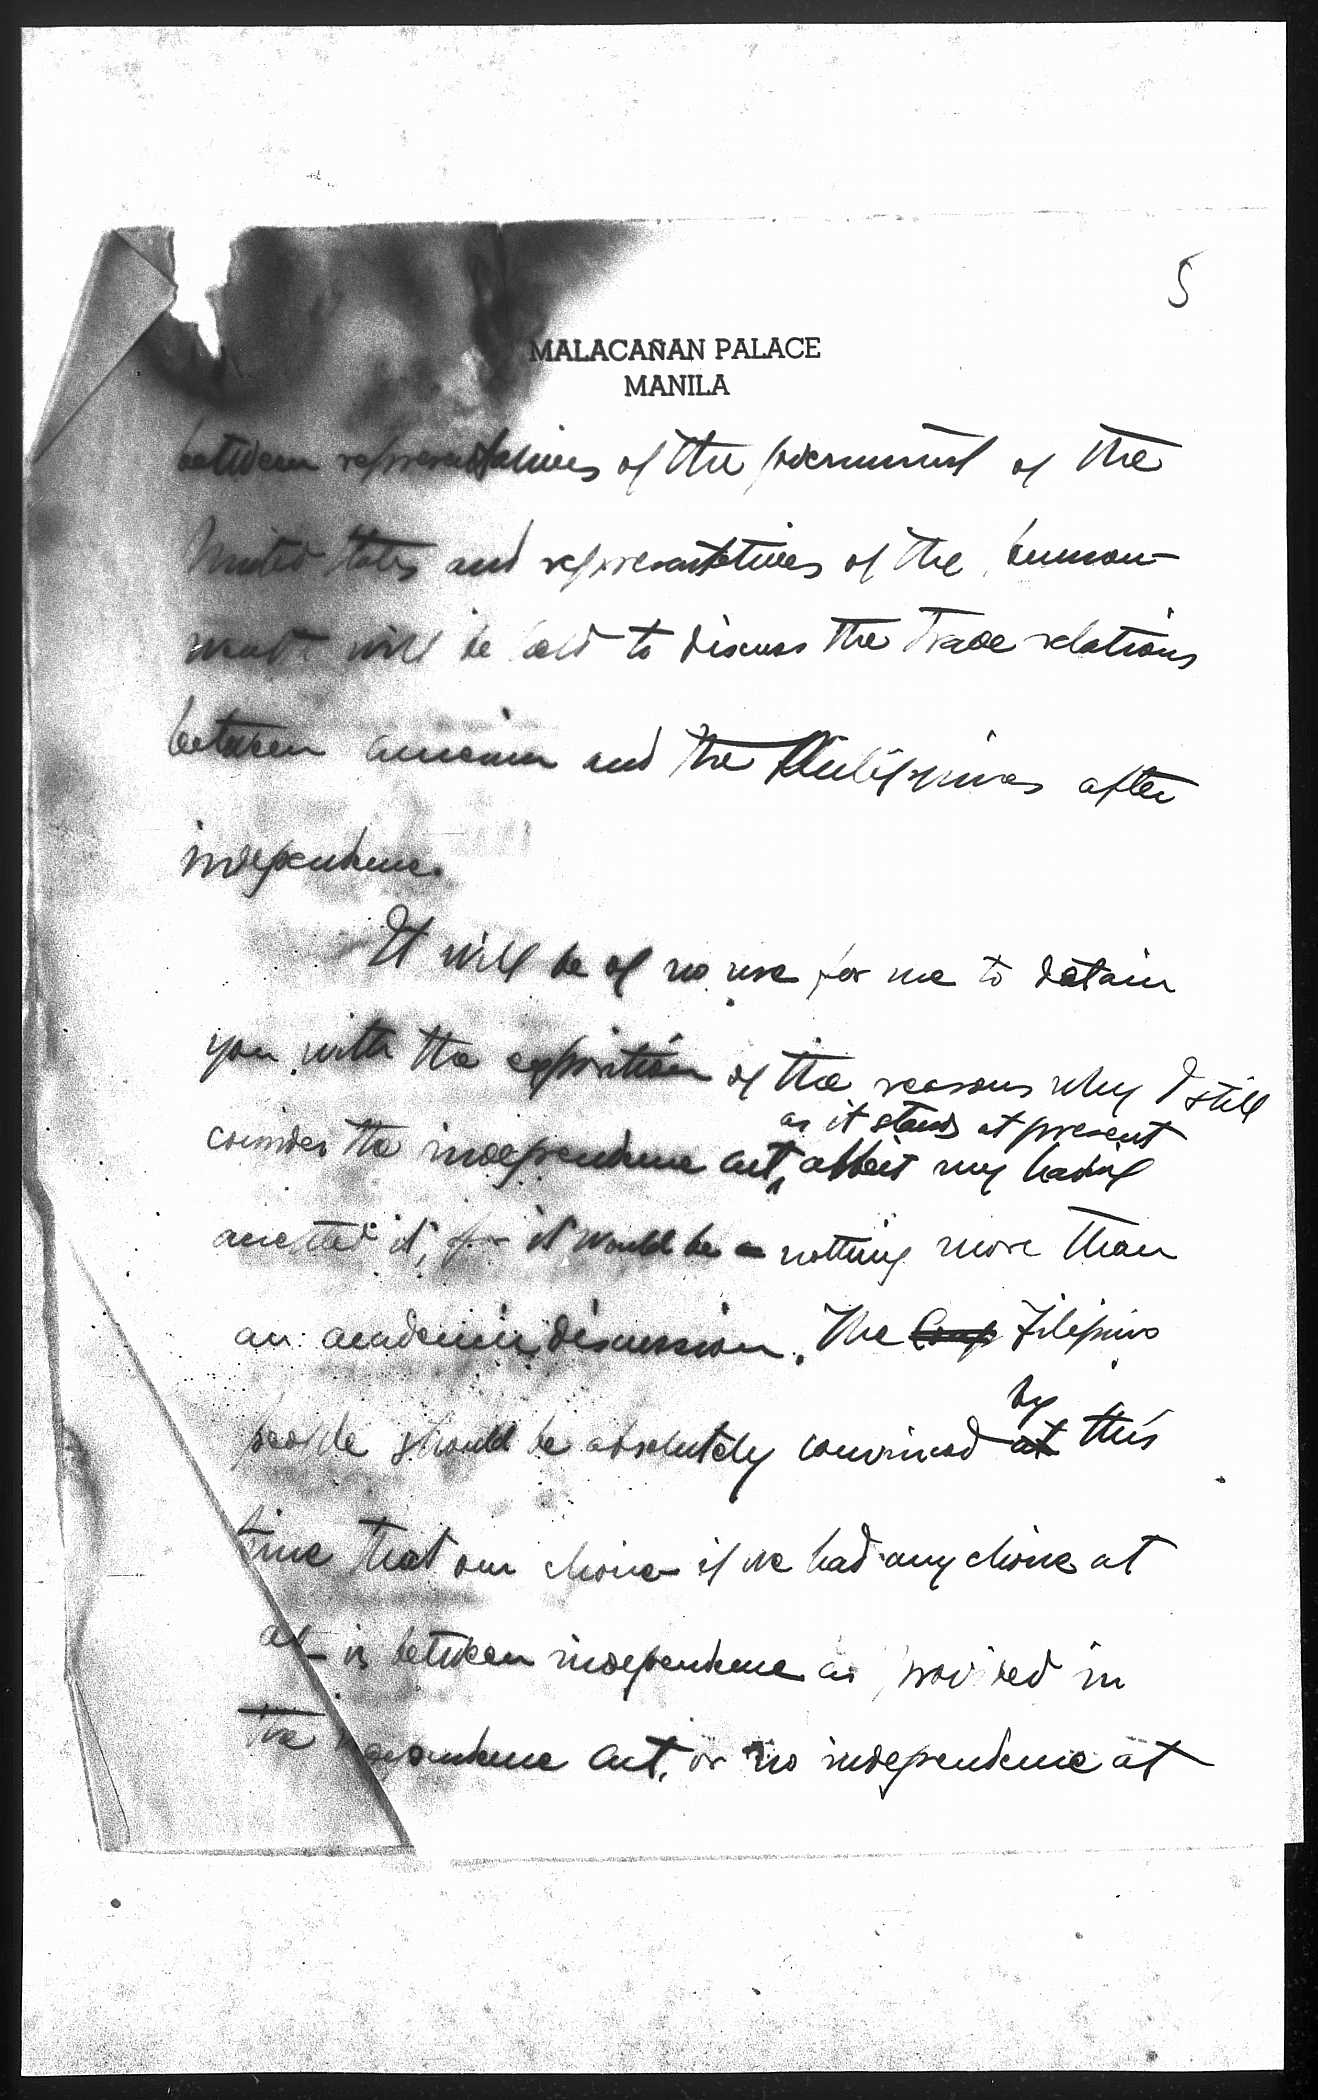 5
MALACAÑAN PALACE
MANILA
between representatives of the Government of the
United States and representatives of the Common-
wealth will be held to discuss the trade relations
between America and the Philippines after
independence.
It will be of no use for me to detain
you with the exposition of the reasons why I still
as it stands at present
consider the independence act, albeit my having
accepted it, for it would be nothing more than
an academic discussion. The Comp Filipino
by
people should be absolutely convinced at this
time that our choice if we had any choice at
all – is between independence as provided in
the independence act, or no independence at